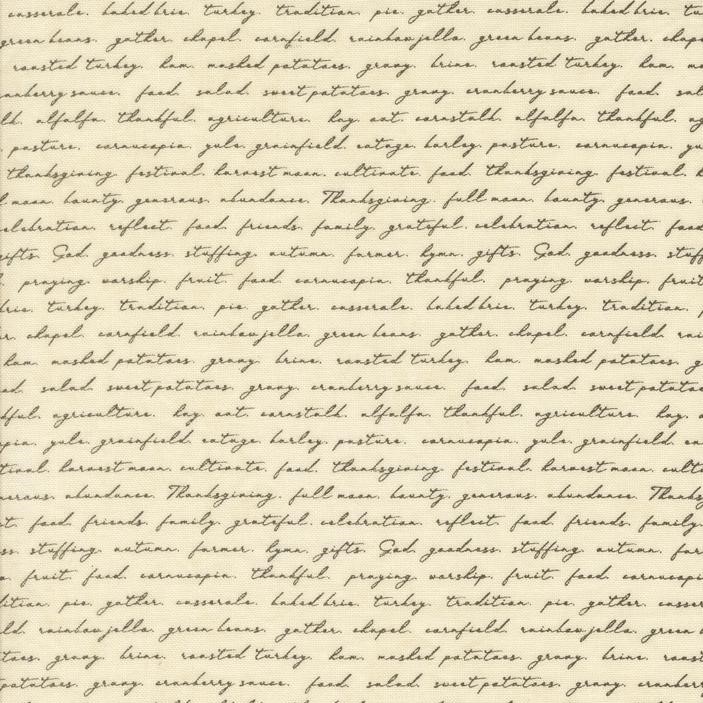 casserole. baked brie. turkey. tradition. pie. gather. casserole. baked brie. tu
green beans. gather. chapel. cornfield. rainbow jello. green beans. gather. chape
roasted turkey. ham. mashed potatoes. gravy. brine. roasted turkey. ham. m
anberry sauce. food. salad. sweet potatoes. gravy. cranberry sauce. food. sal
lk. alfalfa. thankful. agriculture. hay. oat. cornstalk. alfalfa. thankful. ag
. pasture. cornucopia. yule. grainfield. cottage. barley. pasture. cornucopia. yu
thanksgiving. festival. harvest moon. cultivate. food. thanksgiving. festival. h
l moon. bounty. generous. abundance. Thanksgiving. full moon. bounty. generous.
elebration. reflect. food. friends. family. grateful. celebration. reflect. food
gifts. God. goodness. stuffing. autumn. farmer. hymn. gifts. God. goodness. stuff
l. praying. worship. fruit. food. cornucopia. thankful. praying. worship. fruit
brie. turkey. tradition. pie. gather. casserole. baked brie. turkey. tradition. p
r. chapel. cornfield. rainbow jello. green beans. gather. chapel. cornfield. rai
ham. mashed potatoes. gravy. brine. roasted turkey. ham. mashed potatoes. g
od. salad. sweet potatoes. gravy. cranberry sauce. food. salad. sweet potatoe
kful. agriculture. hay. oat. cornstalk. alfalfa. thankful. agriculture. hay. o
opia. yule. grainfield. cottage. barley. pasture. cornucopia. yule. grainfield. co
tival. harvest moon. cultivate. food. thanksgiving. festival. harvest moon. culti
nerous. abundance. Thanksgiving. full moon. bounty. generous. abundance. Thanks
ct. food. friends. family. grateful. celebration. reflect. food. friends. family.
ss. stuffing. autumn. farmer. hymn. gifts. God. goodness. stuffing. autumn. far
p. fruit. food. cornucopia. thankful. praying. worship. fruit. food. cornucopi
dition. pie. gather. casserole. baked brie. turkey. tradition. pie. gather. casser
ld. rainbow jello. green beans. gather. chapel. cornfield. rainbow jello. green b
toes. gravy. brine. roasted turkey. ham. mashed potatoes. gravy. brine. roast
potatoes. gravy. cranberry sauce. food. salad. sweet potatoes. gravy. cranberry